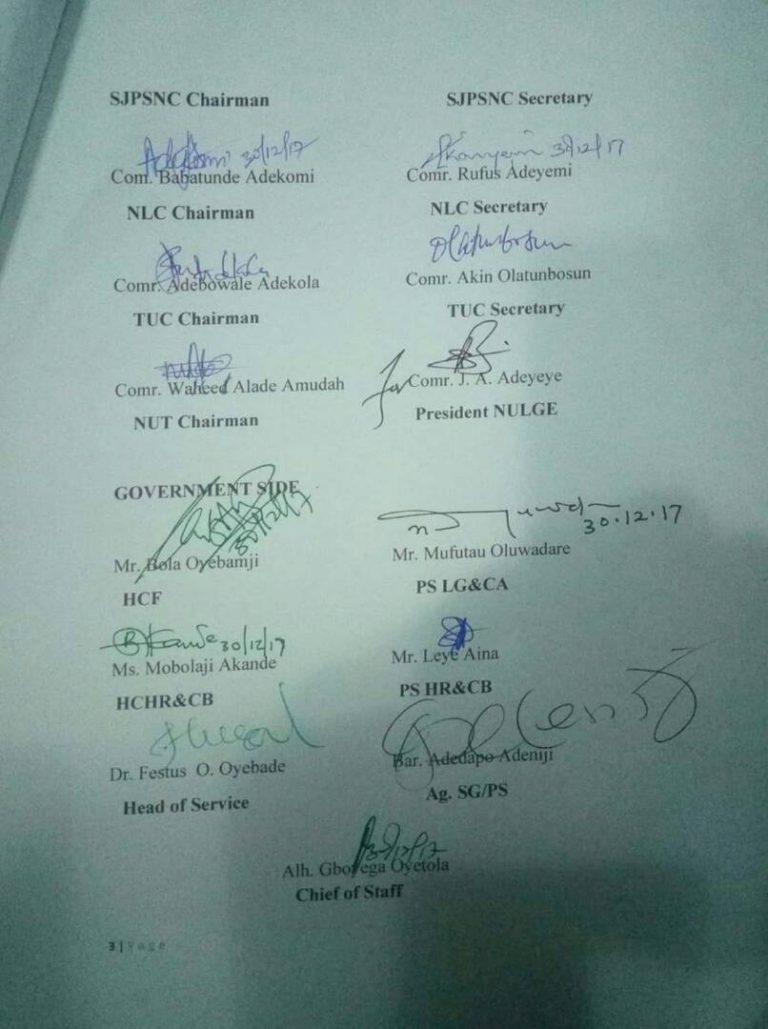 SJPSNC Chairman SJPSNC Secretary
30/12/17 30/12/17
Com. Babatunde Adekomi Comr. Rufus Adeyemi
NLC Chairman NLC Secretary
Olatunbosun
Comr. Adebowale Adekola Comr. Akin Olatunbosun
TUC Chairman TUC Secretary
Comr. Waheed Alade Amudah for Comr. J. A. Adeyeye
NUT Chairman President NULGE
GOVERNMENT SIDE
30/12/17 30.12.17
Mr. Bola Oyebamji Mr. Mufutau Oluwadare
HCF PS LG&CA
30/12/17
Ms. Mobolaji Akande Mr. Leye Aina
HCHR&CB PS HR&CB
Dr. Festus O. Oyebade Bar. Adedapo Adeniji
Head of Service Ag. SG/PS
30/12/17
Alh. Gboyega Oyetola
Chief of Staff
3 | Page